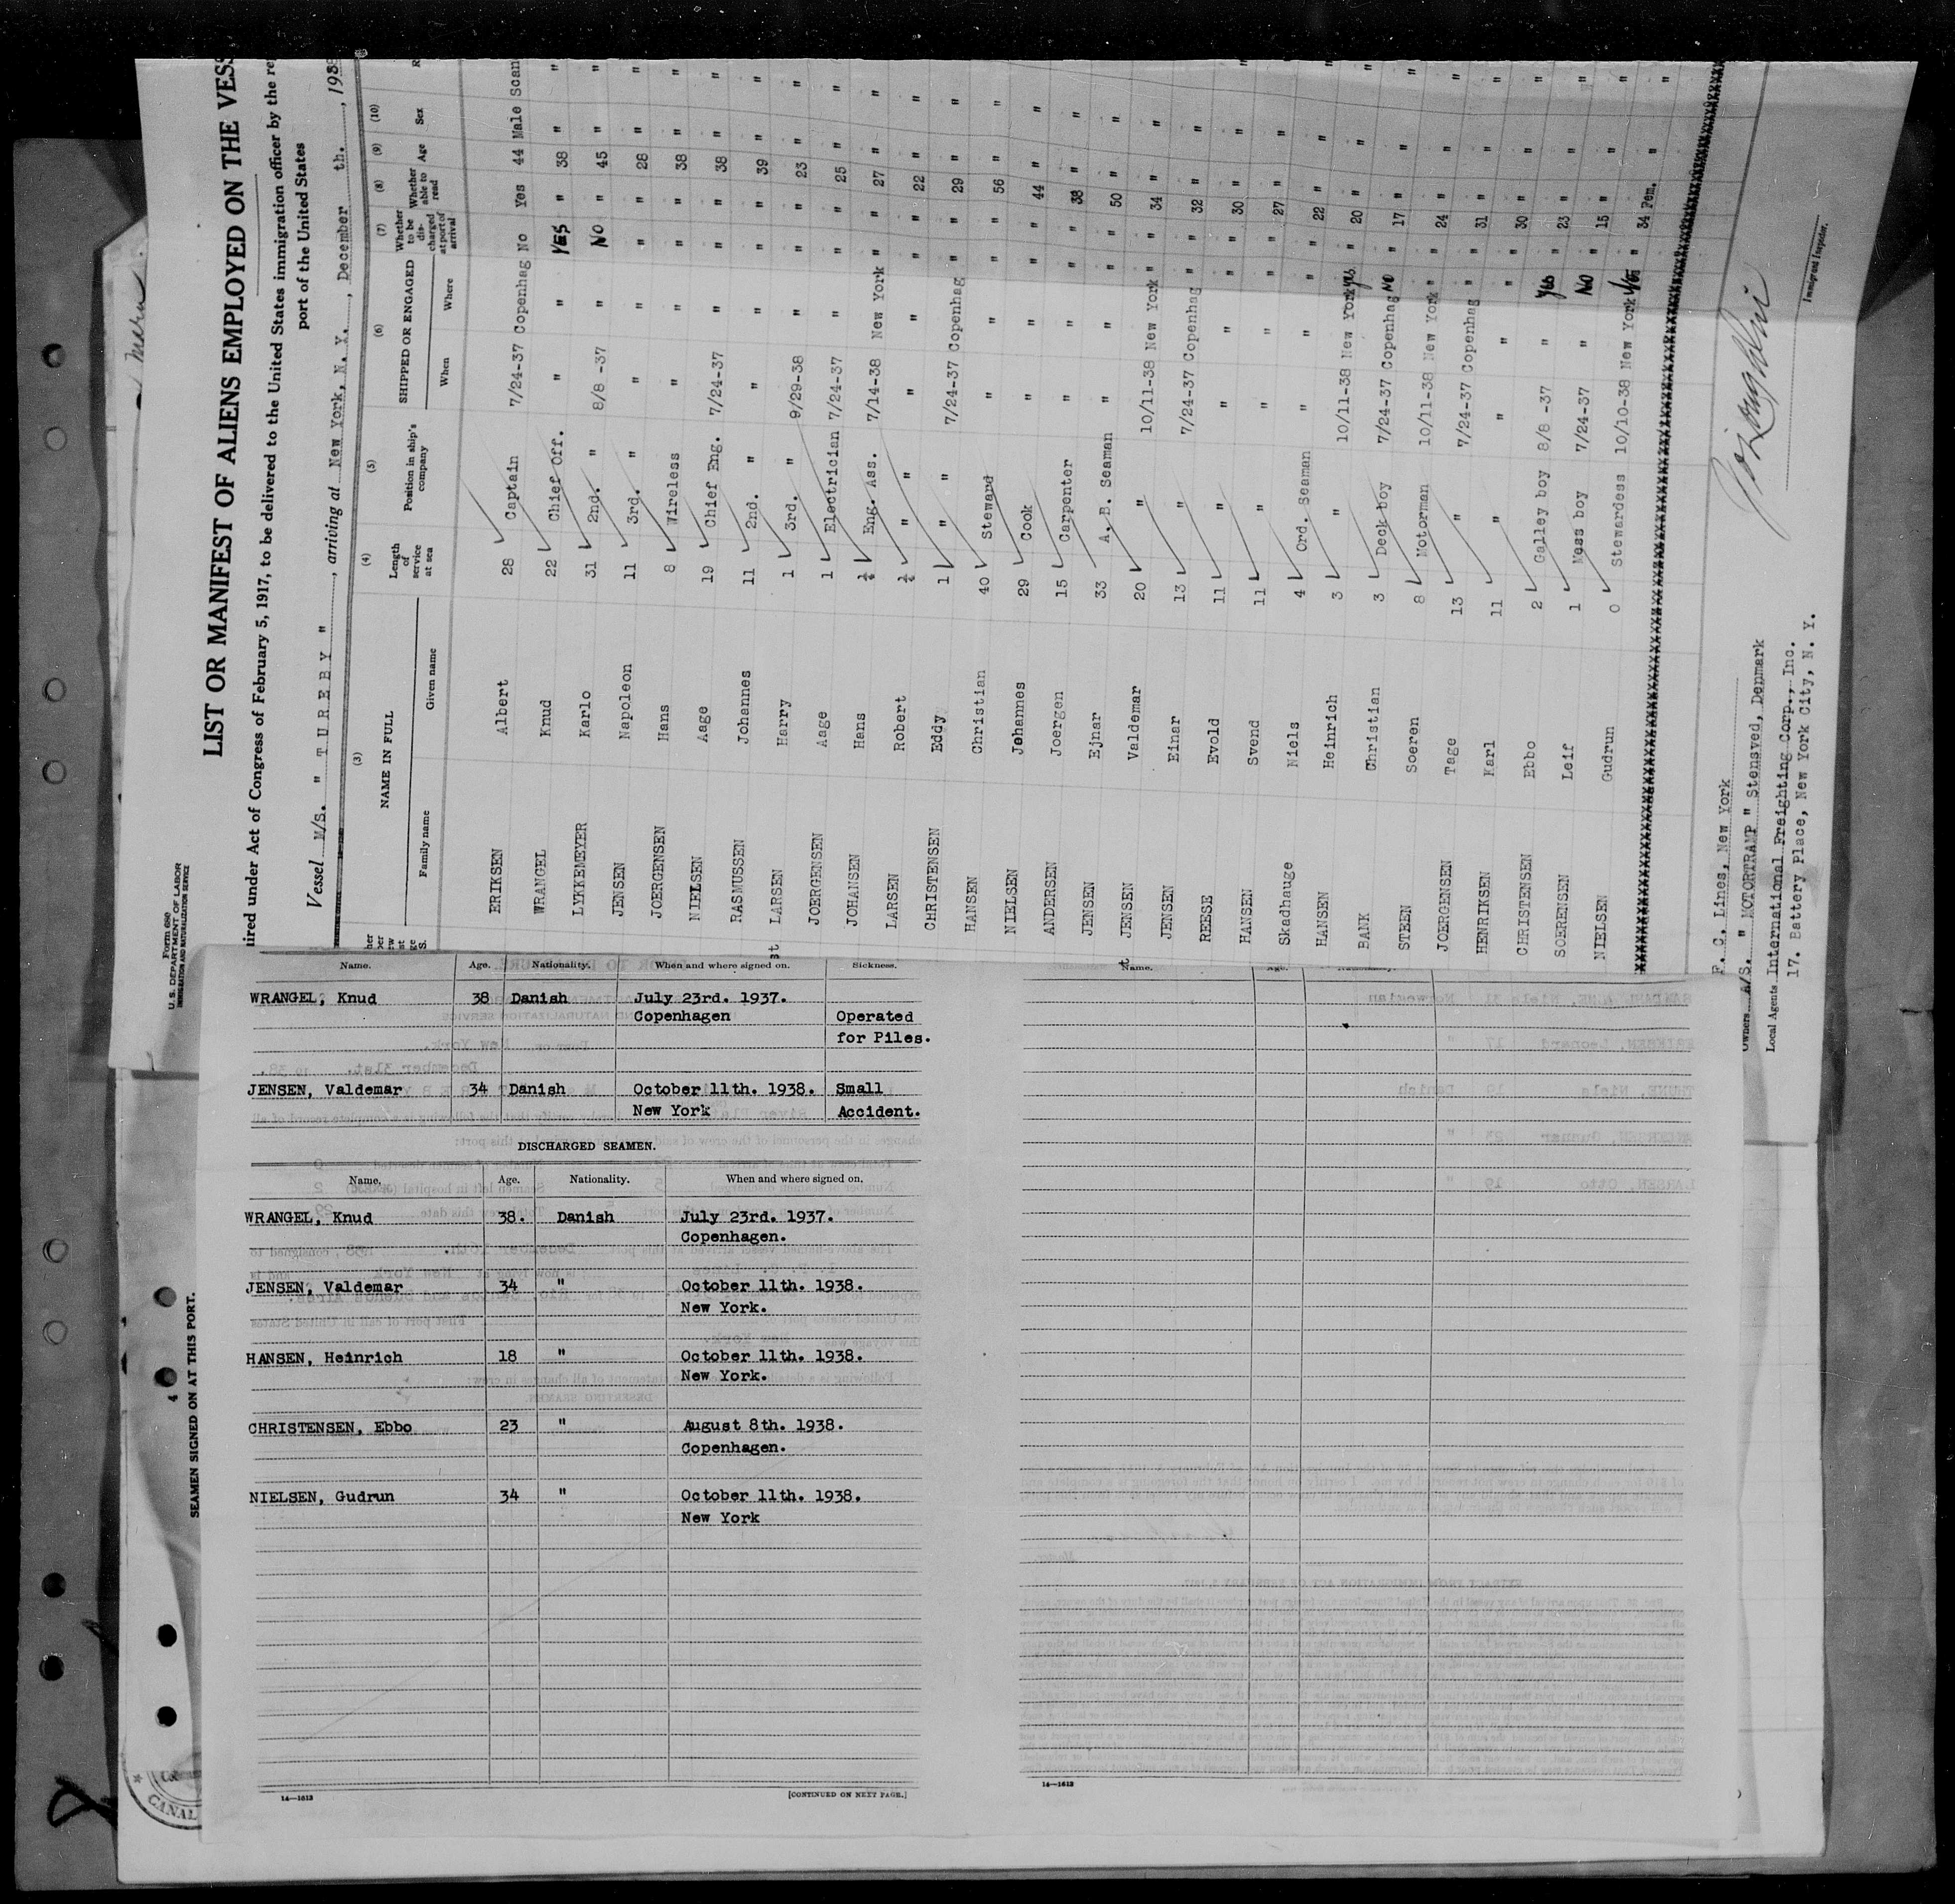 Form 689
U.S. DEPARTMENT OF LABOR
IMMIGRATION AND NATURALIZATION SERVICE
LIST OR MANIFEST OF ALIENS EMPLOYED ON THE VESS
ired under Act of Congress of February 5, 1917, to be delivered to the United States immigration officer by the re
port of the United States
Vessel M/S. " T U R E B Y ", arriving at New York, N. Y., December th., 193
(3) (4) (5) (6) (7) (8) (9) (10)
NAME IN FULL Length of service at sea Position in ship's company SHIPPED OR ENGAGED Whether to be discharged at port of arrival Whether able to read Age Sex R
Family name Given name When Where
ERIKSEN Albert 28 Captain 7/24-37 Copenhag No Yes 44 Male Scan
WRANGEL Knud 22 Chief Off. " " YES " 38 " "
LYKKEMEYER Karlo 31 2nd. " 8/8 -37 " NO " 45 " "
JENSEN Napoleon 11 3rd. " " " " " 28 " "
JOERGENSEN Hans 8 Wireless " " " " 38 " "
NIELSEN Aage 19 Chief Eng. 7/24-37 " " " 38 " "
RASMUSSEN Johannes 11 2nd. " " " " " 39 " "
LARSEN Harry 1 3rd. " 9/29-38 " " " 23 " "
JOERGENSEN Aage 1 Electrician 7/24-37 " " " 25 " "
JOHANSEN Hans ½ Eng. Ass. 7/14-38 New York " " 27 " "
LARSEN Robert ½ " " " " " " 22 " "
CHRISTENSEN Eddy 1 " " 7/24-37 Copenhag " " 29 " "
HANSEN Christian 40 Steward " " " " 56 " "
NIELSEN Johannes 29 Cook " " " " 44 " "
ANDERSEN Joergen 15 Carpenter " " " " 38 " "
JENSEN Ejnar 33 A. B. Seaman " " " " 50 " "
JENSEN Valdemar 20 " 10/11-38 New York " " 34 " "
JENSEN Einar 13 " 7/24-37 Copenhag " " 32 " "
REESE Evold 11 " " " " " 30 " "
HANSEN Svend 11 " " " " " 27 " "
Skadhauge Niels 4 Ord. Seaman " " " " 22 " "
HANSEN Heinrich 3 " 10/11-38 New York yes " 20 " "
BANK Christian 3 Deck boy 7/24-37 Copenhag NO " 17 " "
STEEN Soeren 8 Motorman 10/11-38 New York " " 24 " "
JOERGENSEN Tage 13 " 7/24-37 Copenhag " " 31 " "
HENRIKSEN Karl 11 " " " " " 30 " "
CHRISTENSEN Ebbo 2 Galley boy 8/8 -37 " Yes " 23 " "
SOERENSEN Leif 1 Mess boy 7/24-37 " NO " 15 " "
NIELSEN Gudrun 0 Stewardess 10/10-38 New York Yes " 34 Fem. "
F. C. Lines, New York
Owners A/S. " MOTORTRAMP " Stensved, Denmark
Local Agents International Freighting Corp., Inc.
17. Battery Place, New York City, N. Y.
Immigrant Inspector.
Name. Age. Nationality. When and where signed on. Sickness.
WRANGEL, Knud 38 Danish July 23rd. 1937.
Copenhagen Operated
for Piles.
JENSEN, Valdemar 34 Danish October 11th. 1938. Small
New York Accident.
DISCHARGED SEAMEN.
Name. Age. Nationality. When and where signed on.
WRANGEL, Knud 38. Danish July 23rd. 1937.
Copenhagen.
JENSEN, Valdemar 34 " October 11th. 1938.
New York.
HANSEN, Heinrich 18 " October 11th. 1938.
New York.
CHRISTENSEN, Ebbo 23 " August 8th. 1938.
Copenhagen.
NIELSEN, Gudrun 34 " October 11th. 1938.
New York
14—1613 [CONTINUED ON NEXT PAGE.]
14—1613
SEAMEN SIGNED ON AT THIS PORT.
4
CANAL